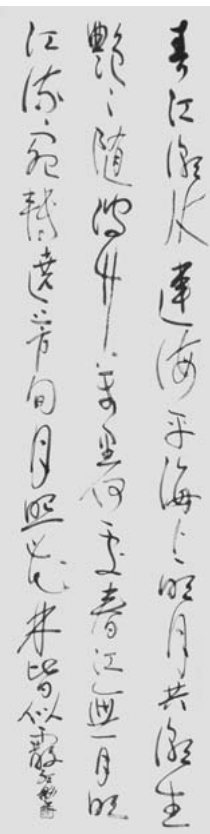 春江潮水連海平海上明月共潮生
艷〻隨波千萬里何處春江無月明
江流宛轉遶芳甸月照花林皆似霰